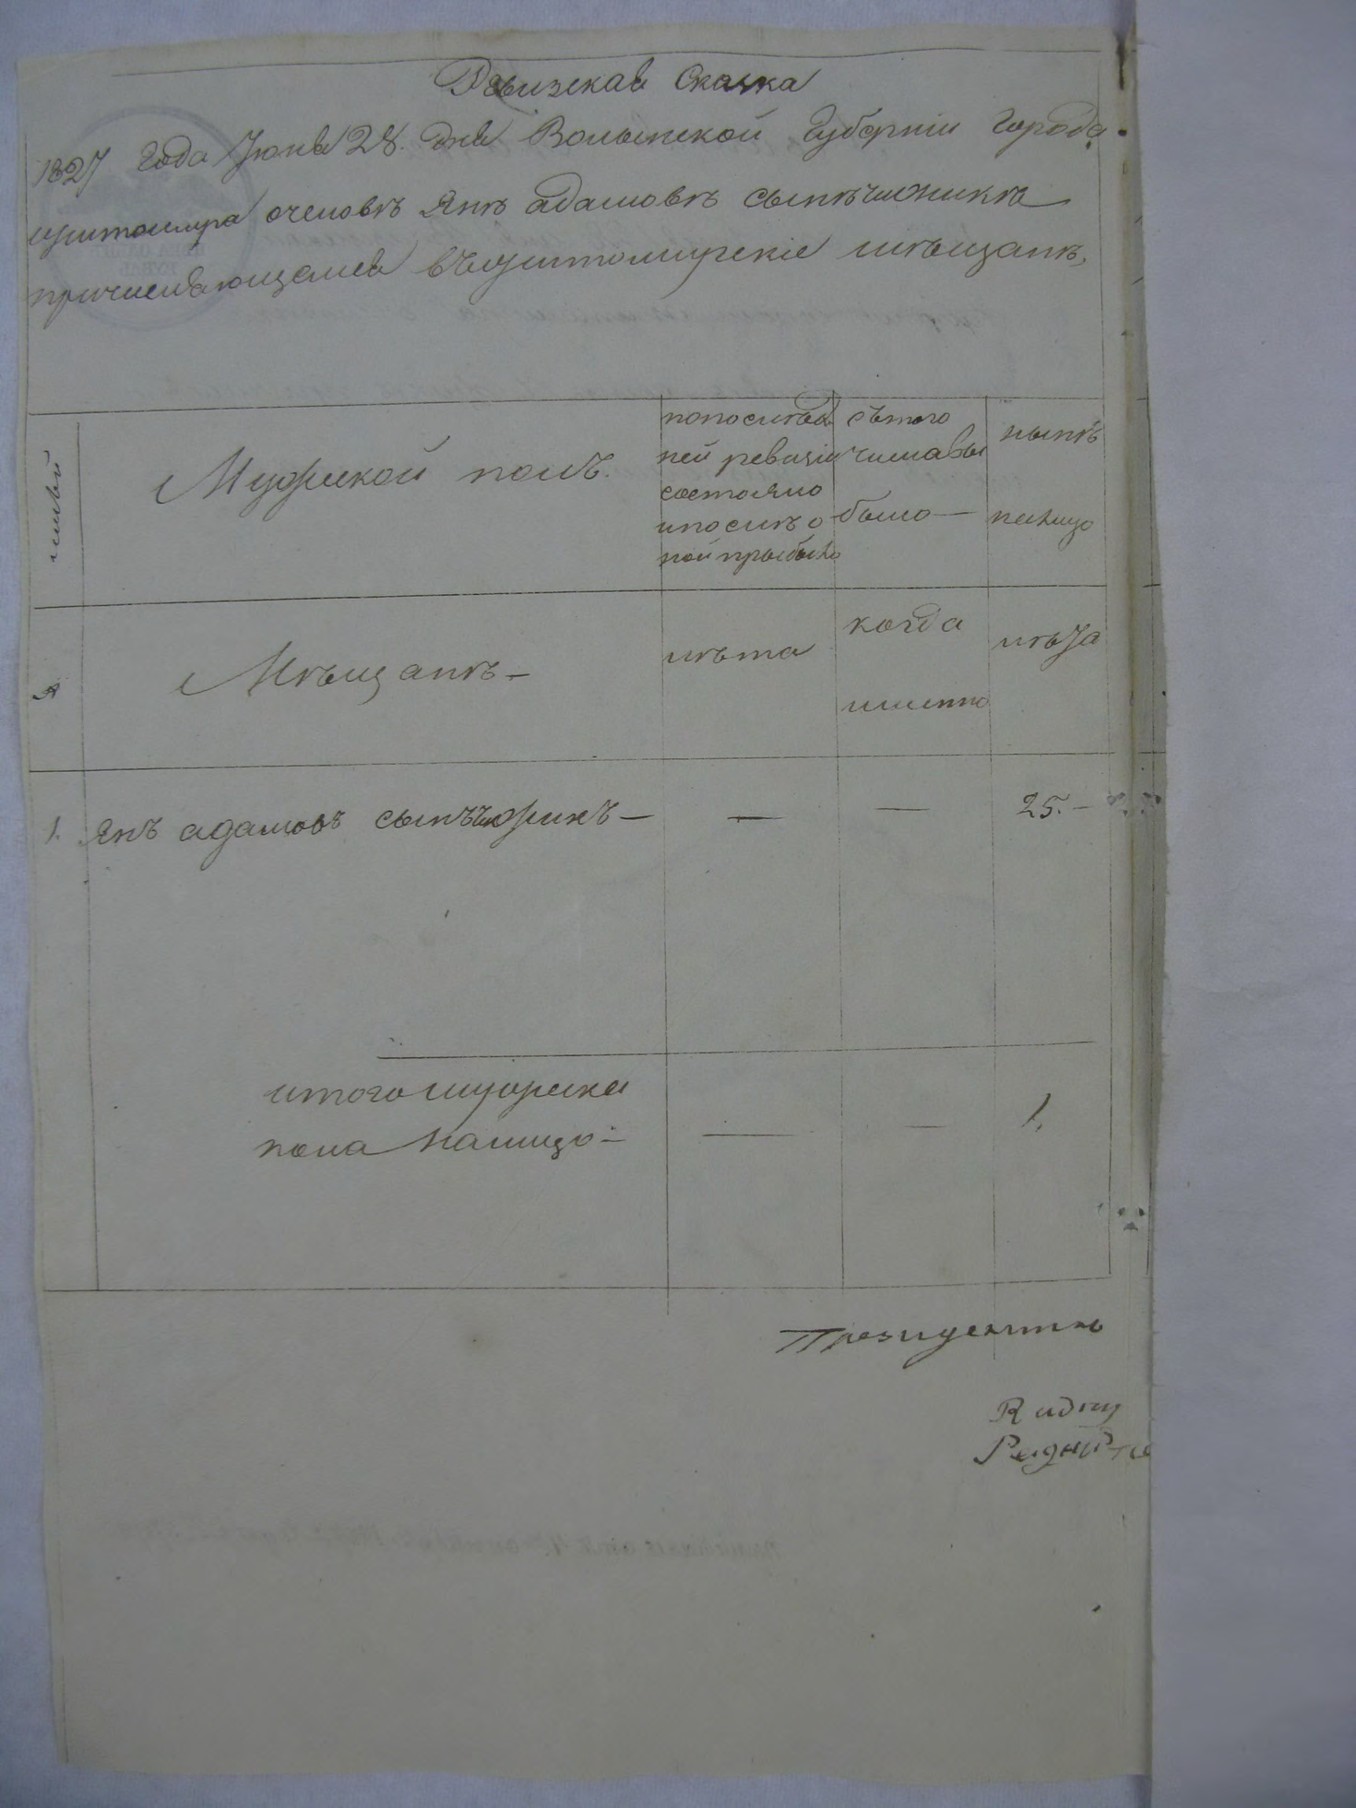 Ревизская Сказка
1827 Года Июня 28. дня Волынской Губернии Города
Житомира очеловѣ Янѣ адамовѣ сынѣ
причисляющемся въ житомирские мѣщанѣ,
Мужеской полъ.
попоследней ревизии состояло и после оной прибыло
съ того числа выбыло —
нынѣ налицо
семьи
Мѣщанѣ —
лѣта
когда именно
лѣта
1. Янъ адамовъ сынъ — — — 25. —
итого мужеска
пола налицо — — — 1.
Президентъ